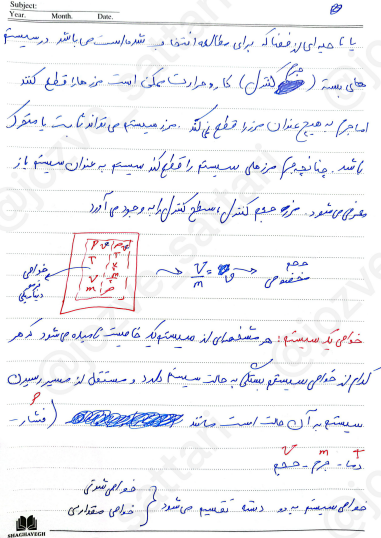 Subject:
Year. Month. Date.
یا ناحیه‌ای از فضا که برای مطالعه انتخاب شده است می باشد در سیستم
های بسته (جرم کنترل) کار و حرارت ممکن است مرزها را قطع کنند
اما جرم به هیچ عنوان مرز را قطع نمی کند. مرز سیستم می تواند ثابت یا متحرک
باشد. چنانچه جرم مرزهای سیستم را قطع کند سیستم به عنوان سیستم باز
معرفی می شود. مرز حجم کنترل، سطح کنترل را به وجود می آورد
خواص
ترمو
دینامیکی
P
T
V
m
V/m = v
حجم
مخصوص
خواص یک سیستم: هر مشخصه‌ای از سیستم یک خاصیت نامیده می شود که هر
کدام از خواص سیستم بستگی به حالت سیستم دارد و مستقل از مسیر رسیدن
سیستم به آن حالت است مانند (فشار -
P
دما - جرم - حجم
V m T
خواص سیستم به دو دسته تقسیم می شود
خواص شدتی
خواص مقداری
SHAGHAYEGH